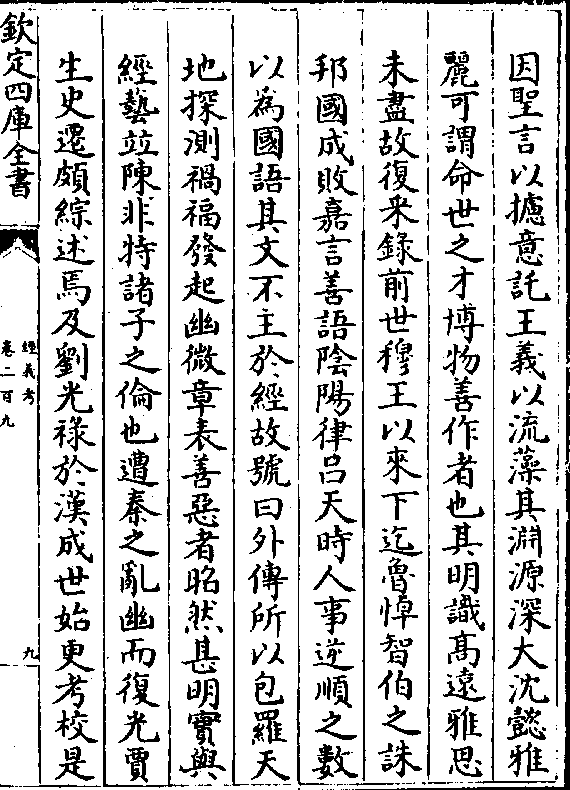 因聖言以攄意託王義以流藻其淵源深大沈懿雅
麗可謂命世之才博物善作者也其明識高遠雅思
未盡故復采錄前世穆王以來下迄魯悼智伯之誅
邦國成敗嘉言善語陰陽律呂天時人事逆順之數
以為國語其文不主於經故號曰外傳所以包羅天
地探測禍福發起幽微章表善惡者昭然甚明實與
經藝竝陳非特諸子之倫也遭秦之亂幽而復光賈
生史遷頗綜述焉及劉光祿於漢成世始更考校是
欽定四庫全書
經義考
卷二百九
九